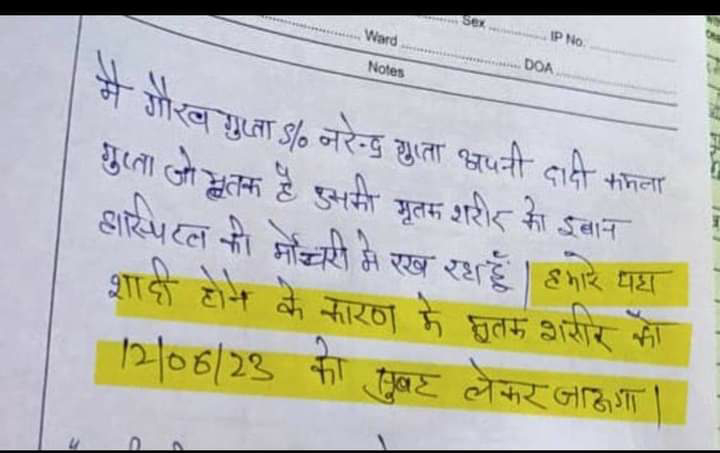 Sex
IP No.
Ward
DOA
Notes
मै गौरव गुप्ता S/o नरेन्द्र गुप्ता अपनी दादी कमला
गुप्ता जो मृतक है उनकी मृतक शरीर को इबान
हास्पिटल की मोर्चरी मे रख रहा हूँ | हमारे यहा
शादी होने के कारण मे मृतक शरीर को
12/06/23 को सुबह लेकर जाऊगा |